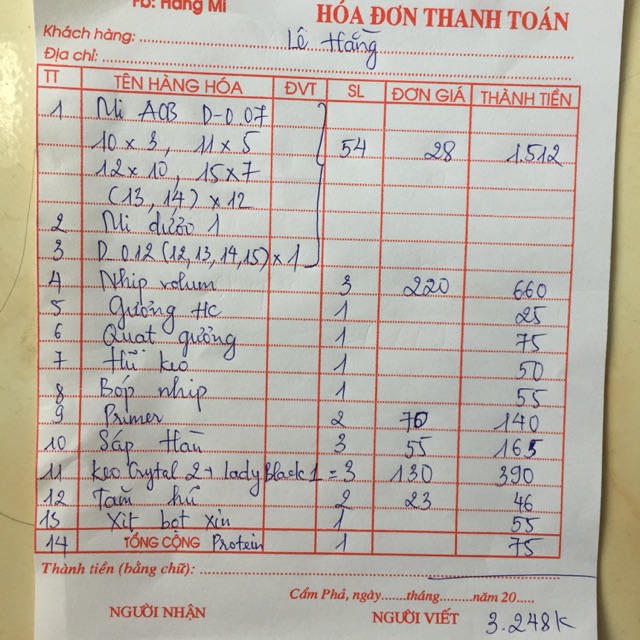 FB: Hằng Mi
HÓA ĐƠN THANH TOÁN
Khách hàng: Lê Hằng
Địa chỉ:
TT TÊN HÀNG HÓA ĐVT SL ĐƠN GIÁ THÀNH TIỀN
1 Mi AOB D-0.07
10 x 3, 11 x 5 54 28 1.512
12 x 10, 15 x 7
(13, 14) x 12
2 Mi dưới 1
3 D 0.12 (12,13,14,15) x 1
4 Nhíp volum 3 220 660
5 Gương HC 1 25
6 Quạt gương 1 75
7 Hũ keo 1 50
8 Bóp nhíp 1 55
9 Primer 2 70 140
10 Sáp Hàn 3 55 165
11 Keo Crytal 2 + Lady Black 1 = 3 130 390
12 Tăm hũ 2 23 46
13 Xịt bọt xịn 1 55
14 TỔNG CỘNG Protein 1 75
Thành tiền (bằng chữ):
Cẩm Phả, ngày......tháng.........năm 20.....
NGƯỜI NHẬN NGƯỜI VIẾT 3.248k